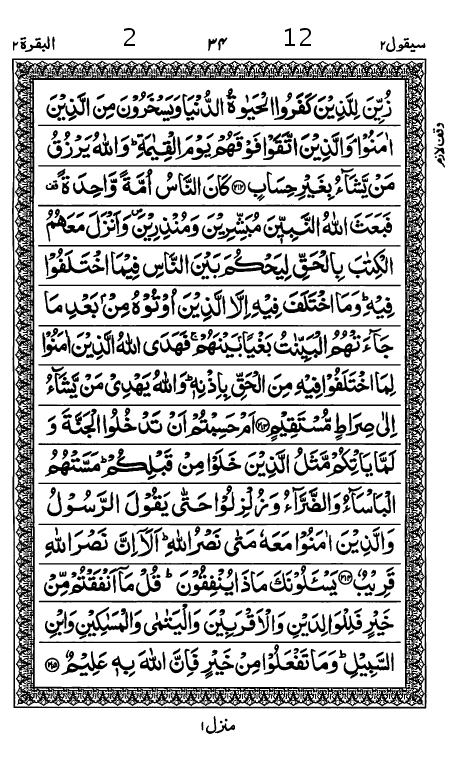 سیقول۲ 12 ۳۴ 2 البقرة۲
زُيِّنَ لِلَّذِيْنَ كَفَرُوا الْحَيٰوةُ الدُّنْيَا وَيَسْخَرُوْنَ مِنَ الَّذِيْنَ
اٰمَنُوْا ۘ وَالَّذِيْنَ اتَّقَوْا فَوْقَهُمْ يَوْمَ الْقِيٰمَةِ ؕ وَاللّٰهُ يَرْزُقُ
مَنْ يَّشَآءُ بِغَيْرِ حِسَابٍ ﴿۲۱۲﴾ كَانَ النَّاسُ اُمَّةً وَّاحِدَةً ۫
فَبَعَثَ اللّٰهُ النَّبِيّٖنَ مُبَشِّرِيْنَ وَمُنْذِرِيْنَ ۪ وَاَنْزَلَ مَعَهُمُ
الْكِتٰبَ بِالْحَقِّ لِيَحْكُمَ بَيْنَ النَّاسِ فِيْمَا اخْتَلَفُوْا
فِيْهِ ؕ وَمَا اخْتَلَفَ فِيْهِ اِلَّا الَّذِيْنَ اُوْتُوْهُ مِنْۢ بَعْدِ مَا
جَآءَتْهُمُ الْبَيِّنٰتُ بَغْيًۢا بَيْنَهُمْ ۚ فَهَدَى اللّٰهُ الَّذِيْنَ اٰمَنُوْا
لِمَا اخْتَلَفُوْا فِيْهِ مِنَ الْحَقِّ بِاِذْنِهٖ ؕ وَاللّٰهُ يَهْدِيْ مَنْ يَّشَآءُ
اِلٰى صِرَاطٍ مُّسْتَقِيْمٍ ﴿۲۱۳﴾ اَمْ حَسِبْتُمْ اَنْ تَدْخُلُوا الْجَنَّةَ وَ
لَمَّا يَاْتِكُمْ مَّثَلُ الَّذِيْنَ خَلَوْا مِنْ قَبْلِكُمْ ؕ مَسَّتْهُمُ
الْبَاْسَآءُ وَالضَّرَّآءُ وَزُلْزِلُوْا حَتّٰى يَقُوْلَ الرَّسُوْلُ
وَالَّذِيْنَ اٰمَنُوْا مَعَهٗ مَتٰى نَصْرُ اللّٰهِ ؕ اَلَاۤ اِنَّ نَصْرَ اللّٰهِ
قَرِيْبٌ ﴿۲۱۴﴾ يَسْـَٔلُوْنَكَ مَاذَا يُنْفِقُوْنَ ؕ قُلْ مَاۤ اَنْفَقْتُمْ مِّنْ
خَيْرٍ فَلِلْوَالِدَيْنِ وَالْاَقْرَبِيْنَ وَالْيَتٰمٰى وَالْمَسٰكِيْنِ وَابْنِ
السَّبِيْلِ ؕ وَمَا تَفْعَلُوْا مِنْ خَيْرٍ فَاِنَّ اللّٰهَ بِهٖ عَلِيْمٌ ﴿۲۱۵﴾
وقف لازم
منزل ۱